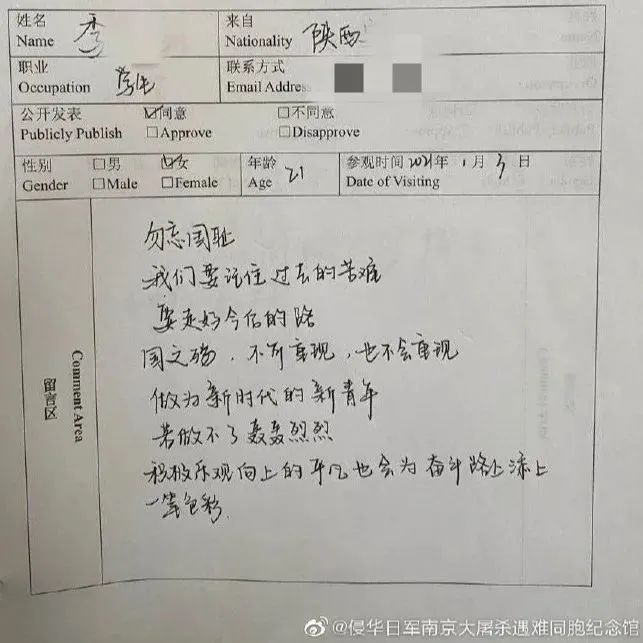 姓名 李 来自 陕西
Name Nationality
职业 学生 联系方式
Occupation Email Address
公开发表 ☑同意 □不同意
Publicly Publish □Approve □Disapprove
性别 □男 ☑女 年龄 21 参观时间 2021年1月3日
Gender □Male □Female Age Date of Visiting
留言区
Comment Area
勿忘国耻
我们要记住过去的苦难
要走好今后的路
国之殇,不可重现,也不会重现
做为新时代的新青年
若做不了轰轰烈烈
积极乐观向上的平凡也会为奋斗路上添上
一笔色彩.
@侵华日军南京大屠杀遇难同胞纪念馆